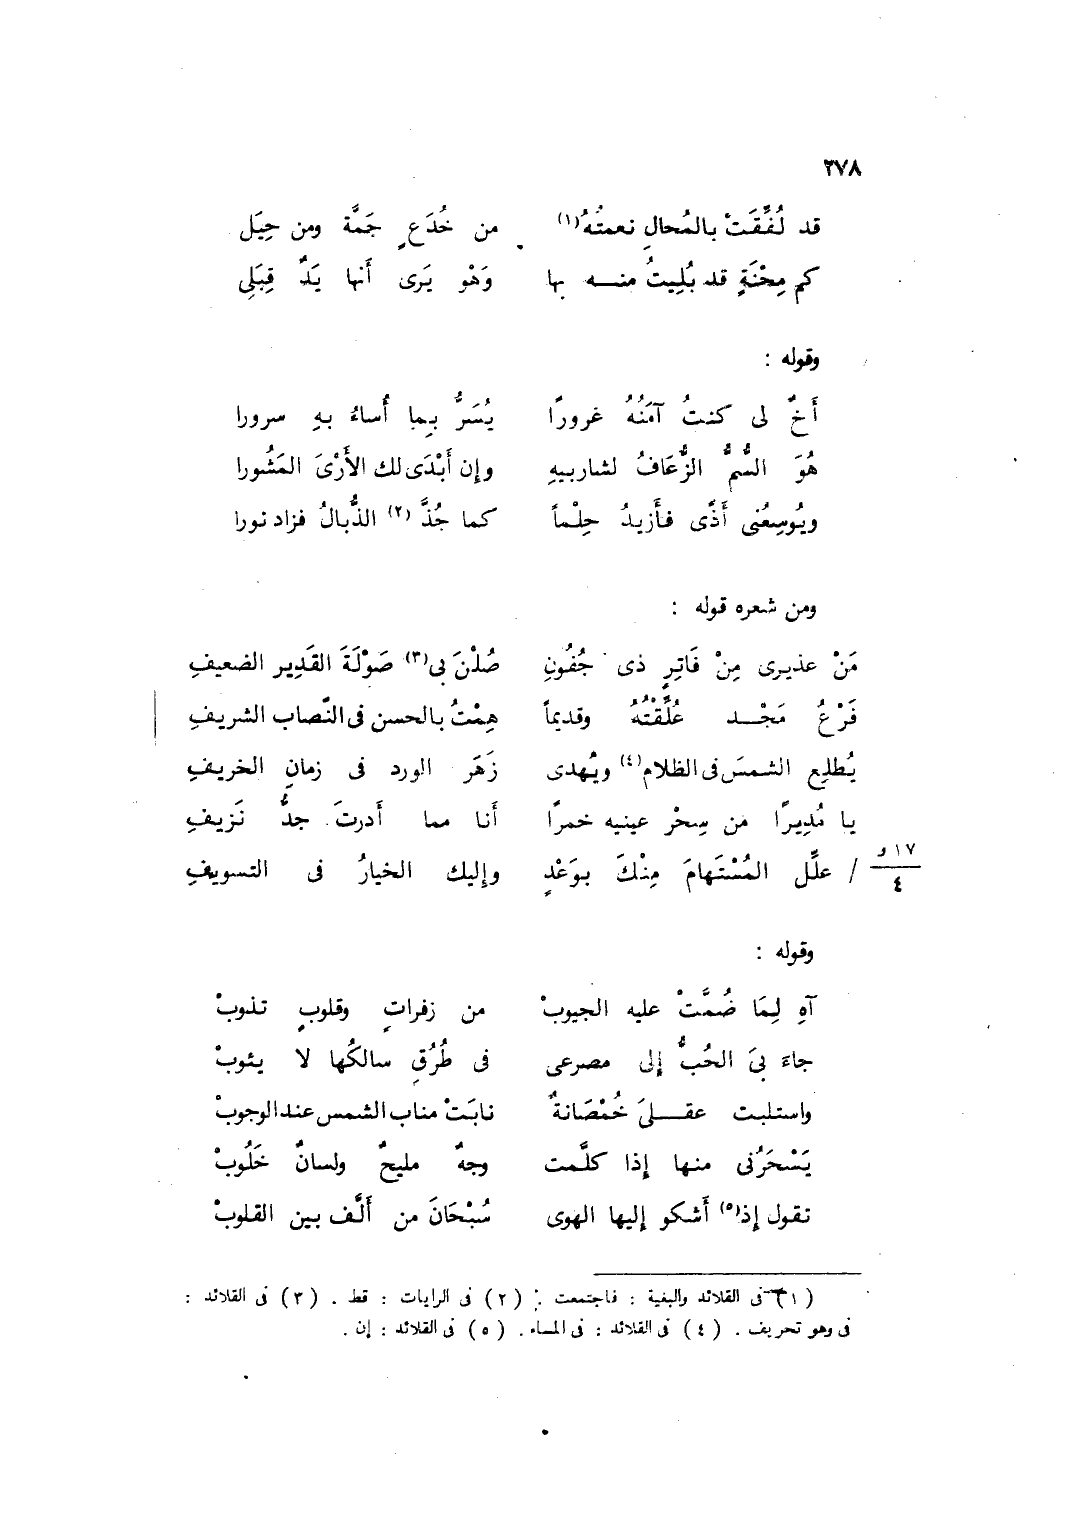 ٢٧٨
قد لُفِّقَتْ بالمُحالِ نعمتُهُ (١) من خُدَعٍ جَمَّة ومن حِيَل
كم مِحْنَةٍ قد بُلِيتُ منـــه بها وَهْو يَرى أنها يَدٌ قِبَلِى
وقوله :
أَخٌ لى كنتُ آمَنُهُ غرورًا يُسَرُّ بِما أُساءُ بهِ سرورا
هُوَ السُّمُّ الزُّعَافُ لشاربيهِ وإن أَبْدَى لك الأَرْىَ المَشُورا
ويُوسِعُنى أذًى فأَزيدُ حِلْماً كما جُذَّ (٢) الذُّبالُ فزاد نورا
ومن شعره قوله :
مَنْ عذيرى مِنْ فَاتِرٍ ذى جُفُونٍ صُلْنَ بى (٣) صَوْلَةَ القَدِيرِ الضعيفِ
فَرْعُ مَجْــد عُلِّقْتُهُ وقديماً هِمْتُ بالحسن فى النِّصاب الشريفِ
يُطلِع الشمسَ فى الظلام (٤) ويُهدى زَهَر الورد فى زمانِ الخريفِ
يا مُدِيرًا من سِحْر عينيه خمرًا أنا مما أدرتَ جدُّ نَزيفِ
١٧ و / ٤ / علِّل المُسْتَهامَ مِنْكَ بوَعْدٍ وإليك الخيارُ فى التسويفِ
وقوله :
آهِ لِمَا ضُمَّتْ عليه الجيوبْ من زفراتٍ وقلوبٍ تذوبْ
جاءَ بىَ الحُبُّ إلى مصرعى فى طُرُقٍ سالكُها لا يئوبْ
واستلبت عقــلىَ خُمْصَانةٌ نابَتْ مناب الشمس عند الوجوبْ
يَسْحَرُنى منها إذا كلَّمت وجهٌ مليحٌ ولسانٌ خَلُوبْ
تقول إذ (٥) أشكو إليها الهوى سُبْحَانَ من أَلَّف بين القلوبْ
(١) فى القلائد والبغية : فاجتمعت . (٢) فى الرايات : قط . (٣) فى القلائد :
فى وهو تحريف . (٤) فى القلائد : فى المساء . (٥) فى القلائد : إن .